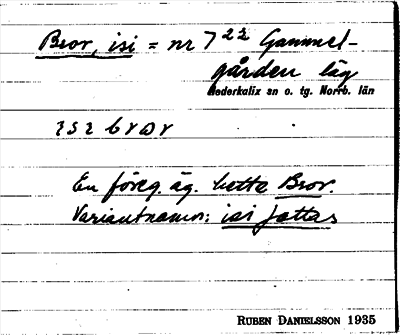 Bror, isi = nr 7²² Gammel-
gården läg
Nederkalix sn o. tg. Norrb. län
En föreg. äg. hette Bror.
Variantnamn: isi fattas
RUBEN DANIELSSON 1935